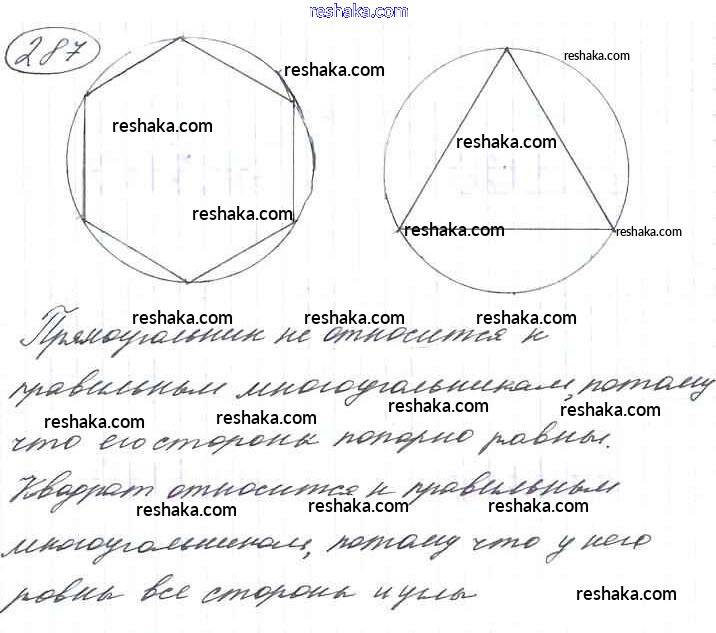 reshaka.com
287
reshaka.com
reshaka.com
reshaka.com
reshaka.com
reshaka.com
reshaka.com
reshaka.com
reshaka.com reshaka.com reshaka.com
Прямоугольник не относится к
правильным многоугольникам, потому
reshaka.com reshaka.com reshaka.com reshaka.com
что его стороны попарно равны.
Квадрат относится к правильным
reshaka.com reshaka.com reshaka.com reshaka.com
многоугольникам, потому что у него
равны все стороны и углы
reshaka.com